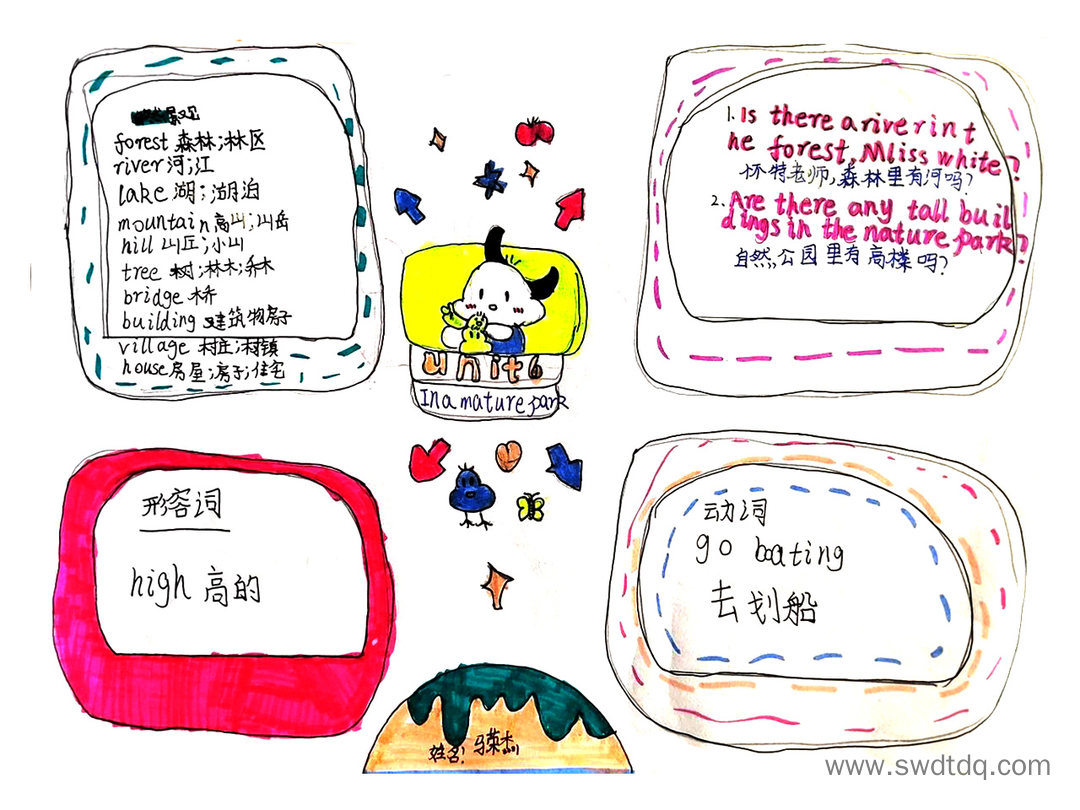 景观
forest 森林;林区
river 河;江
lake 湖;湖泊
mountain 高山;山岳
hill 山丘;小山
tree 树;林木;乔木
bridge 桥
building 建筑物房子
village 村庄;村镇
house 房屋;房子;住宅
unit6
In a mature park
1. Is there a river in t
he forest, Mliss white?
怀特老师,森林里有河吗?
2. Are there any tall buil
dings in the nature park?
自然公园里有高楼吗?
形容词
high 高的
动词
go boating
去划船
姓名:马荣杰
www.swdtdq.com